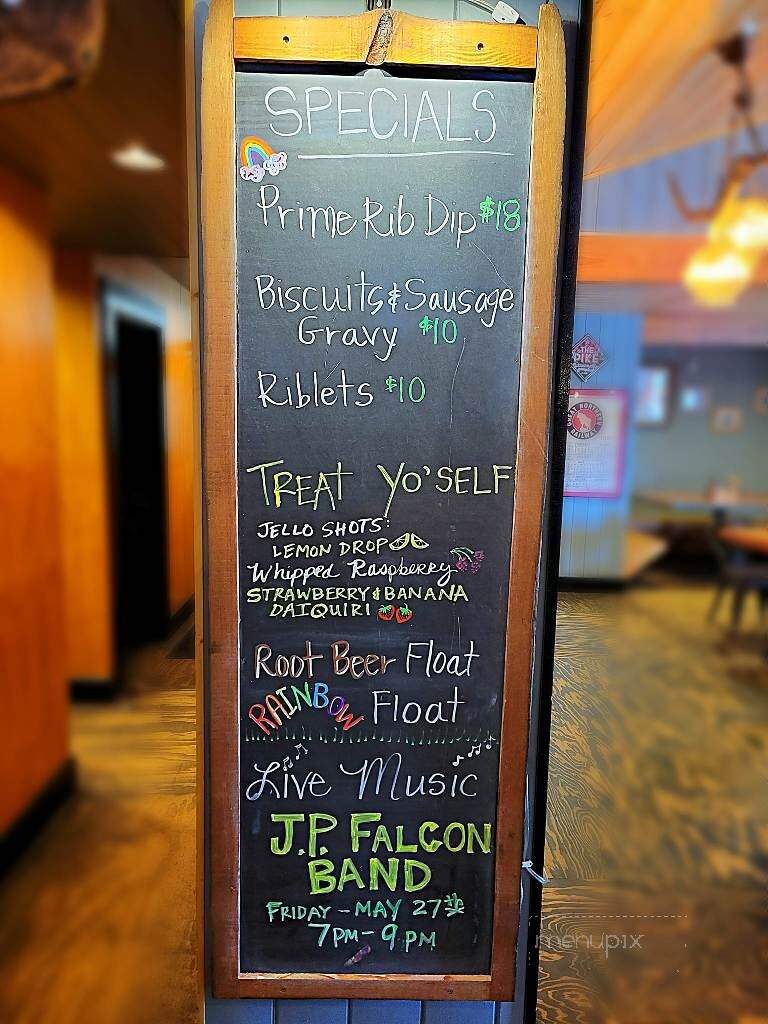 SPECIALS
Prime Rib Dip $18
Biscuits & Sausage
Gravy $10
Riblets $10
TREAT YO'SELF
JELLO SHOTS:
LEMON DROP
Whipped Raspberry
STRAWBERRY & BANANA
DAIQUIRI
Root Beer Float
RAINBOW Float
Live Music
J.P. FALCON
BAND
FRIDAY - MAY 27th
7PM - 9 PM
THE
PIKE
GREAT NORTHERN
RAILWAY
menupix